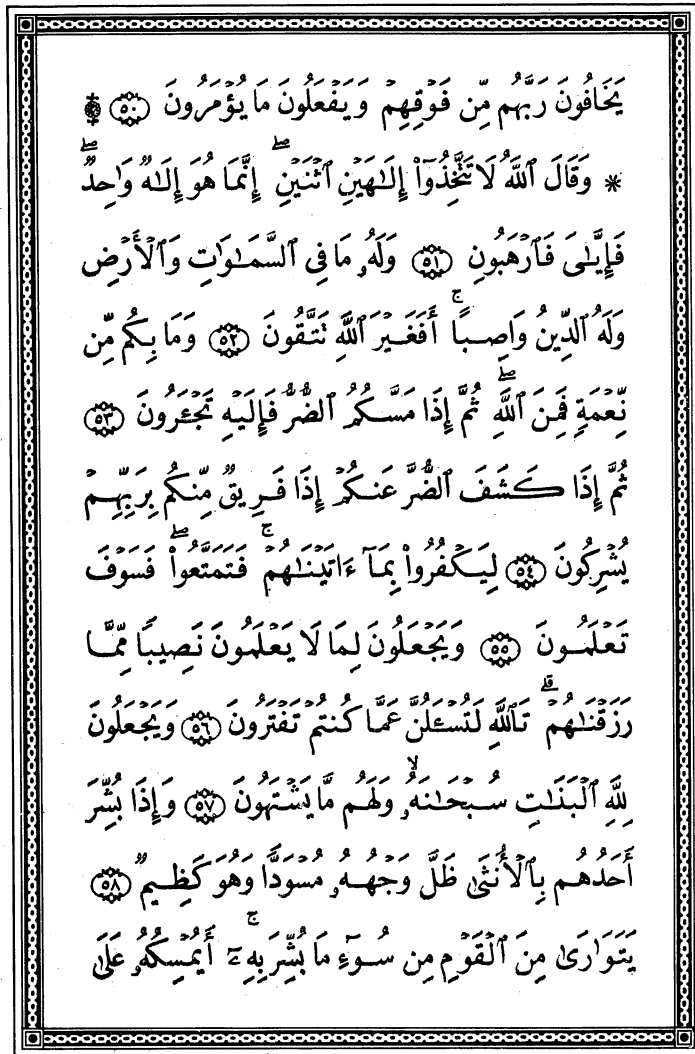 يَخَافُونَ رَبَّهُم مِّن فَوْقِهِمْ وَيَفْعَلُونَ مَا يُؤْمَرُونَ ۩ ٥٠
* وَقَالَ ٱللَّهُ لَا تَتَّخِذُوٓا۟ إِلَـٰهَيْنِ ٱثْنَيْنِ ۖ إِنَّمَا هُوَ إِلَـٰهٌ وَٰحِدٌ ۖ
فَإِيَّـٰىَ فَٱرْهَبُونِ ٥١ وَلَهُۥ مَا فِى ٱلسَّمَـٰوَٰتِ وَٱلْأَرْضِ
وَلَهُ ٱلدِّينُ وَاصِبًا ۚ أَفَغَيْرَ ٱللَّهِ تَتَّقُونَ ٥٢ وَمَا بِكُم مِّن
نِّعْمَةٍ فَمِنَ ٱللَّهِ ۖ ثُمَّ إِذَا مَسَّكُمُ ٱلضُّرُّ فَإِلَيْهِ تَجْـَٔرُونَ ٥٣
ثُمَّ إِذَا كَشَفَ ٱلضُّرَّ عَنكُمْ إِذَا فَرِيقٌ مِّنكُم بِرَبِّهِمْ
يُشْرِكُونَ ٥٤ لِيَكْفُرُوا۟ بِمَآ ءَاتَيْنَـٰهُمْ ۚ فَتَمَتَّعُوا۟ ۖ فَسَوْفَ
تَعْلَمُونَ ٥٥ وَيَجْعَلُونَ لِمَا لَا يَعْلَمُونَ نَصِيبًا مِّمَّا
رَزَقْنَـٰهُمْ ۗ تَٱللَّهِ لَتُسْـَٔلُنَّ عَمَّا كُنتُمْ تَفْتَرُونَ ٥٦ وَيَجْعَلُونَ
لِلَّهِ ٱلْبَنَـٰتِ سُبْحَـٰنَهُۥ ۙ وَلَهُم مَّا يَشْتَهُونَ ٥٧ وَإِذَا بُشِّرَ
أَحَدُهُم بِٱلْأُنثَىٰ ظَلَّ وَجْهُهُۥ مُسْوَدًّا وَهُوَ كَظِيمٌ ٥٨
يَتَوَٰرَىٰ مِنَ ٱلْقَوْمِ مِن سُوٓءِ مَا بُشِّرَ بِهِۦٓ ۚ أَيُمْسِكُهُۥ عَلَىٰ